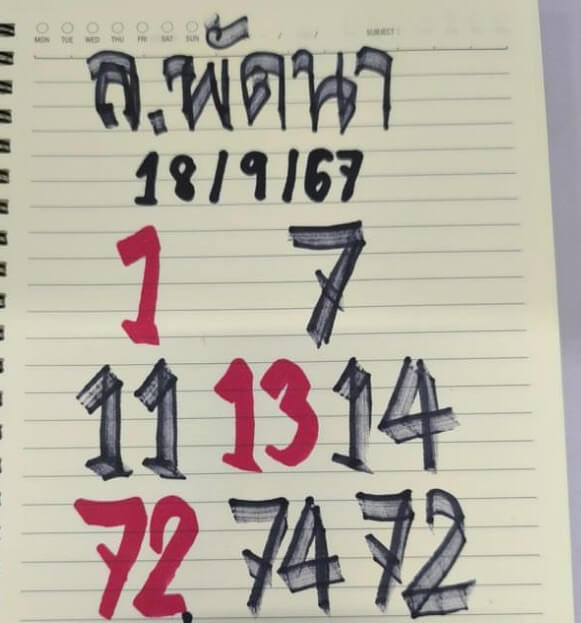 MON TUE WED THU FRI SAT SUN / / SUBJECT :
ล.พัฒนา
18/9/67
1 7
11 13 14
72 74 72